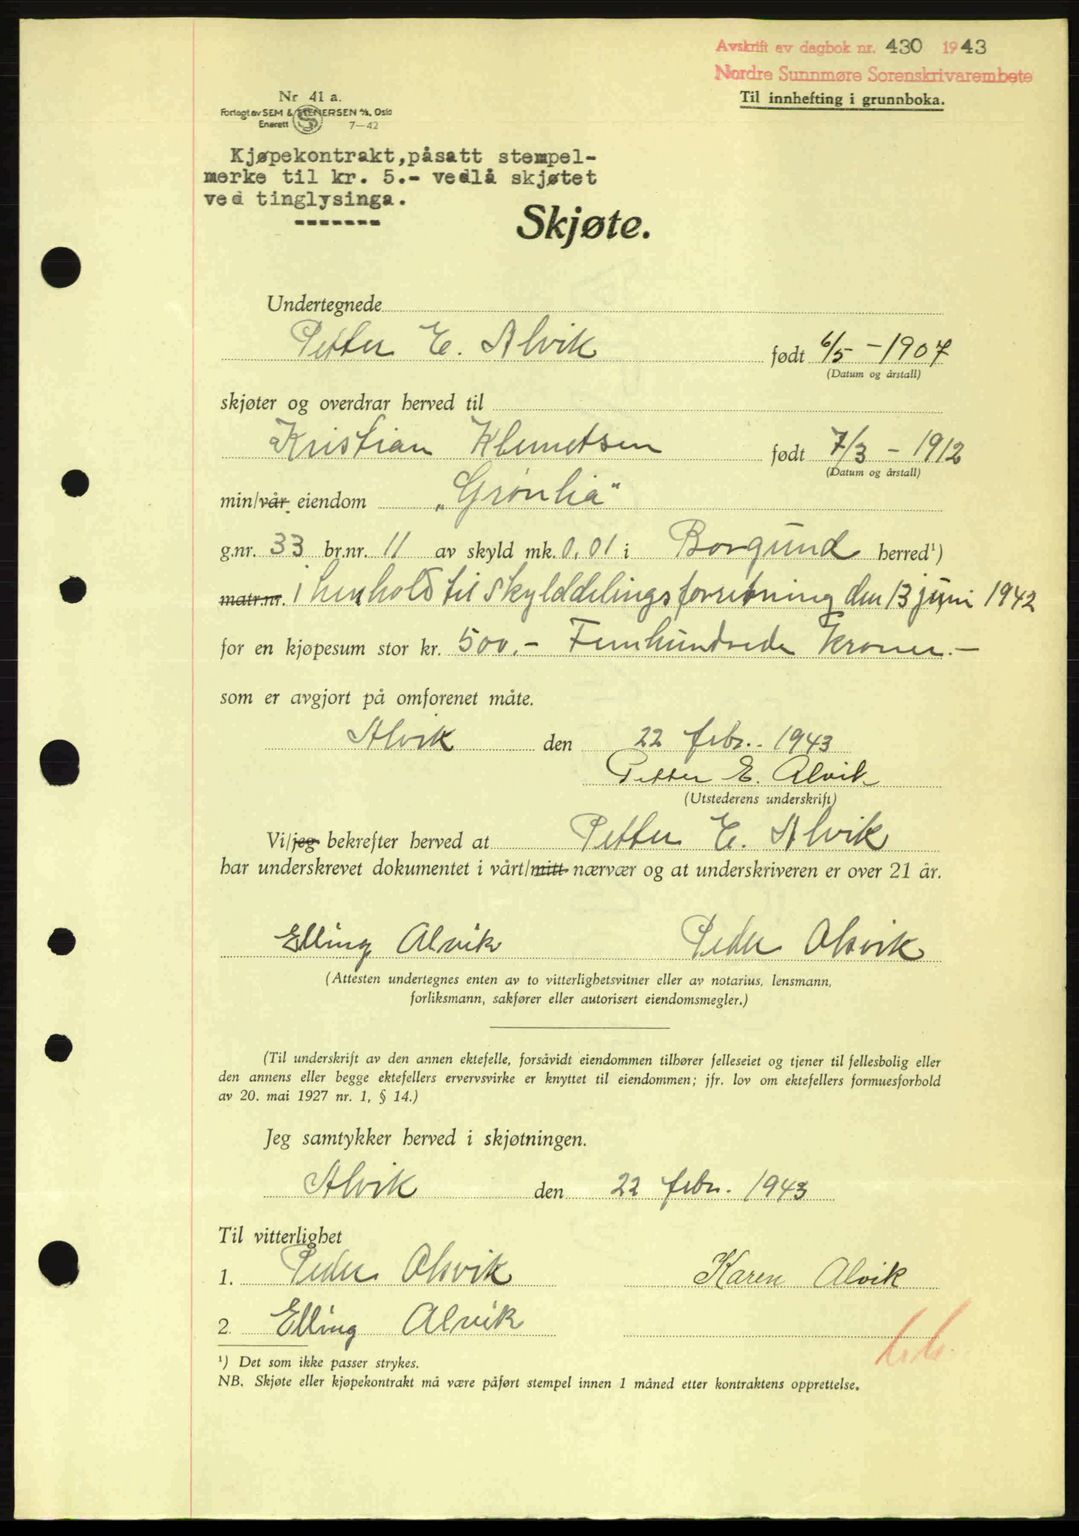 Avskrift av dagbok nr. 430 1943
Nordre Sunnmøre Sorenskrivarembete
Til innhefting i grunnboka.
Nr 41 a.
Forlagt av SEM & STENERSEN A/S, Oslo
Enerett 7-42
Kjøpekontrakt, påsatt stempel-
merke til kr. 5.- vedlå skjøtet
ved tinglysinga.
-------
Skjøte.
Undertegnede
Petter E. Alvik født 6/5 - 1907
(Datum og årstall)
skjøter og overdrar herved til
Kristian Klemetsen født 7/3 - 1912
(Datum og årstall)
min/vår eiendom „Grønlia“
g.nr. 33 br.nr. 11 av skyld mk. 0,01 i Borgund herred¹)
matr.nr. i henhold til skylddelingsforretning den 13 juni 1942
for en kjøpesum stor kr. 500.- Femhundrede kroner.-
som er avgjort på omforenet måte.
Alvik den 22 febr. 1943
Petter E. Alvik
(Utstederens underskrift)
Vi/jeg bekrefter herved at Petter E. Alvik
har underskrevet dokumentet i vårt/mitt nærvær og at underskriveren er over 21 år.
Elling Alvik Peder Alsvik
(Attesten undertegnes enten av to vitterlighetsvitner eller av notarius, lensmann,
forliksmann, sakfører eller autorisert eiendomsmegler.)
(Til underskrift av den annen ektefelle, forsåvidt eiendommen tilhører felleseiet og tjener til fellesbolig eller
den annens eller begge ektefellers ervervsvirke er knyttet til eiendommen; jfr. lov om ektefellers formuesforhold
av 20. mai 1927 nr. 1, § 14.)
Jeg samtykker herved i skjøtningen.
Alvik den 22 febr. 1943
Til vitterlighet
1. Peder Alsvik Karen Alvik
2. Elling Alvik
¹) Det som ikke passer strykes.
NB. Skjøte eller kjøpekontrakt må være påført stempel innen 1 måned etter kontraktens opprettelse.